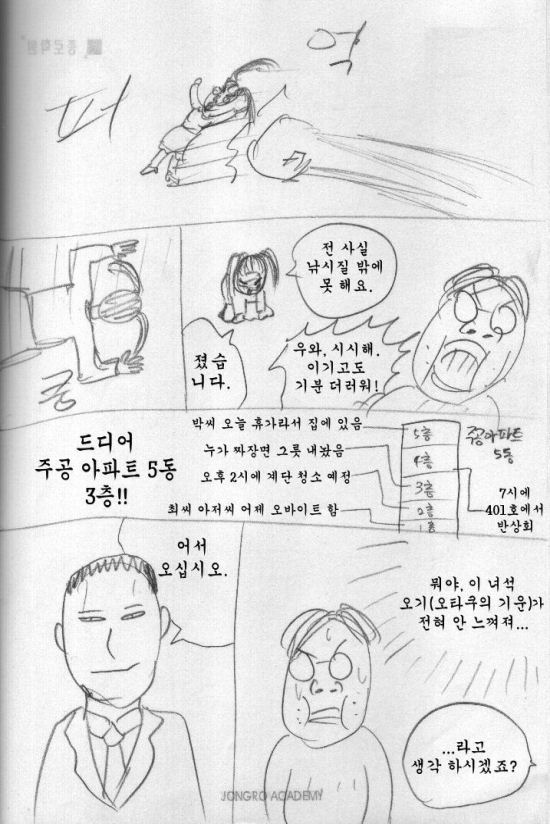 종로학원
퍼
억
전 사실
낚시질 밖에
못 해요.
졌습
니다.
우와, 시시해.
이기고도
기분 더러워!
쿵
드디어
주공 아파트 5동
3층!!
박씨 오늘 휴가라서 집에 있음
누가 짜장면 그릇 내놨음
오후 2시에 계단 청소 예정
최씨 아저씨 어제 오바이트 함
5층
4층
3층
2층
1층
주공아파트
5동
7시에
401호에서
반상회
어서
오십시오.
뭐야, 이 녀석
오기(오타쿠의 기운)가
전혀 안 느껴져...
...라고
생각 하시겠죠?
JONGRO ACADEMY